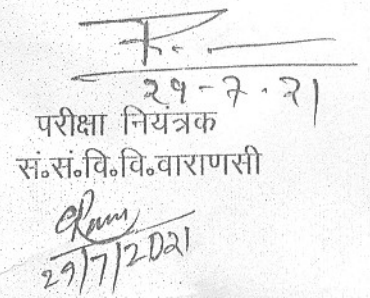 29-7-21
परीक्षा नियंत्रक
सं॰सं॰वि॰वि॰वाराणसी
29/7/2021